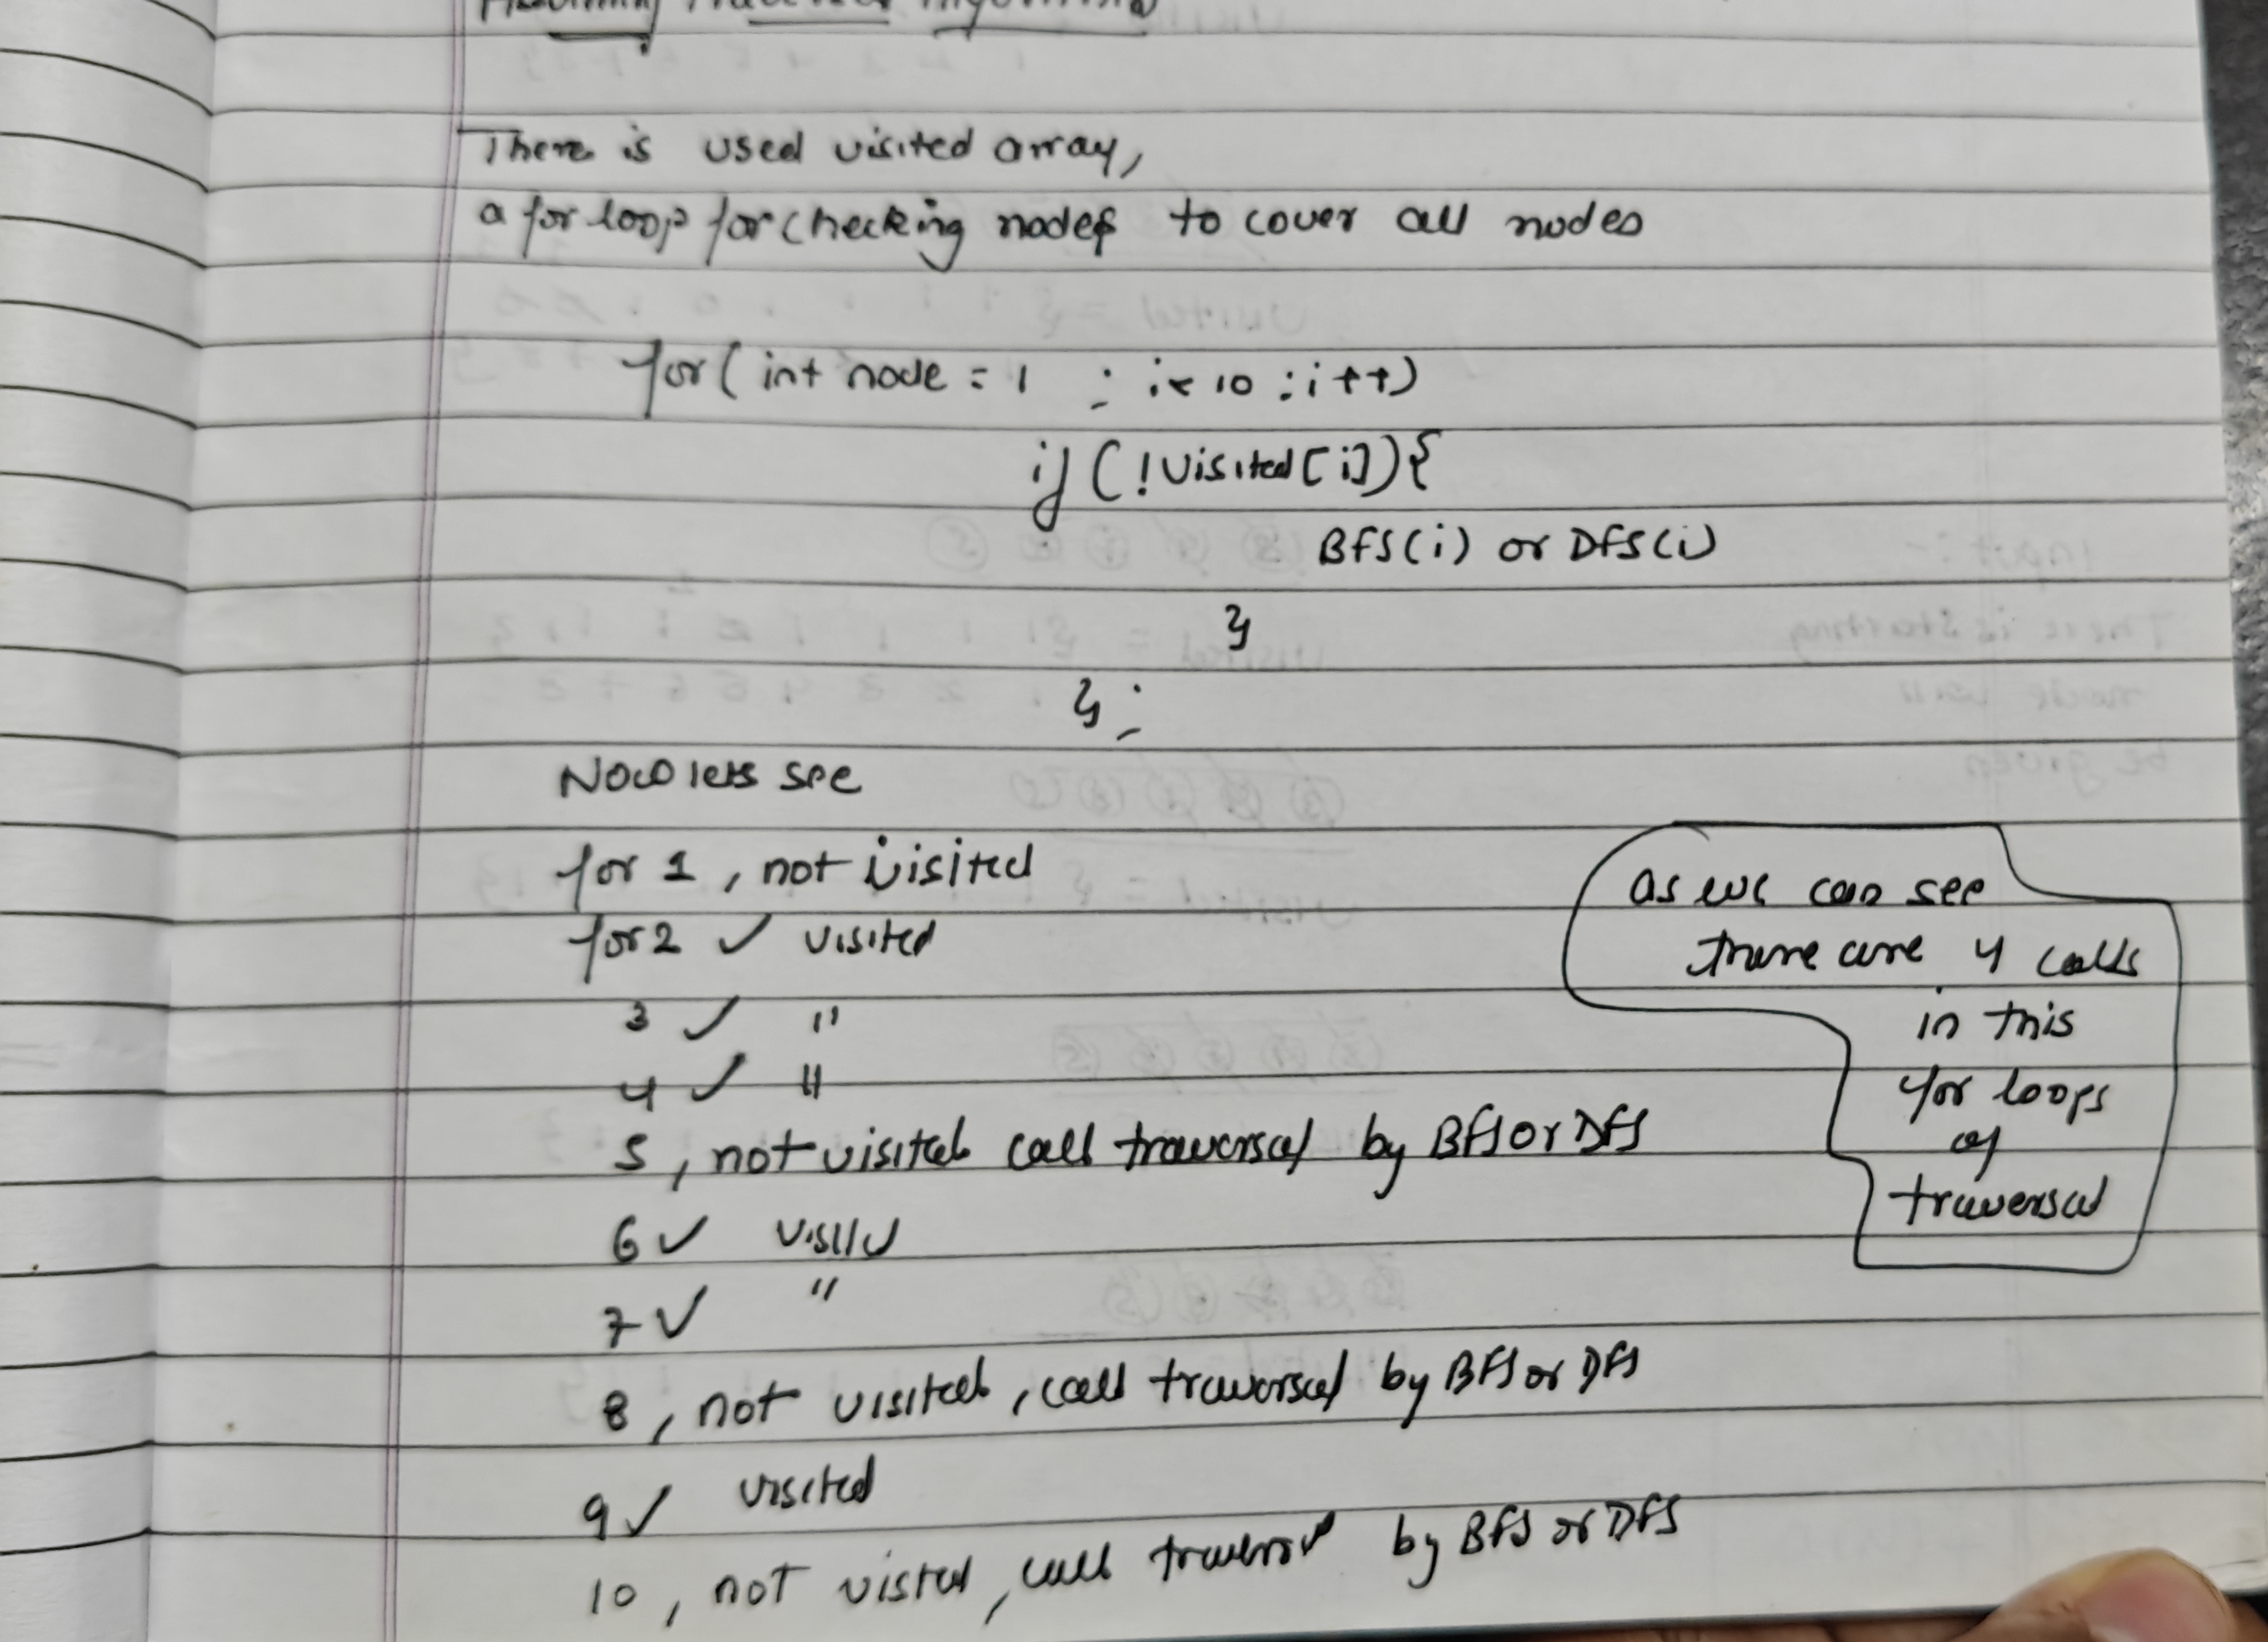 There is used visited array,
a for loop for checking nodes to cover all nodes
for( int node = 1 ; i< 10 ; i++)
if (!visited[i]){
BFS(i) or DFS(i)
}
};
Now lets see
for 1, not visited
for 2 ✓ visited
3 ✓ "
4 ✓ "
5, not visited call traversal by BFS or DFS
6 ✓ visited
7 ✓ "
8, not visited, call traversal by BFS or DFS
9 ✓ visited
10, not visted, call traversal by BFS or DFS
as we can see
there are 4 calls
in this
for loops
of
traversal